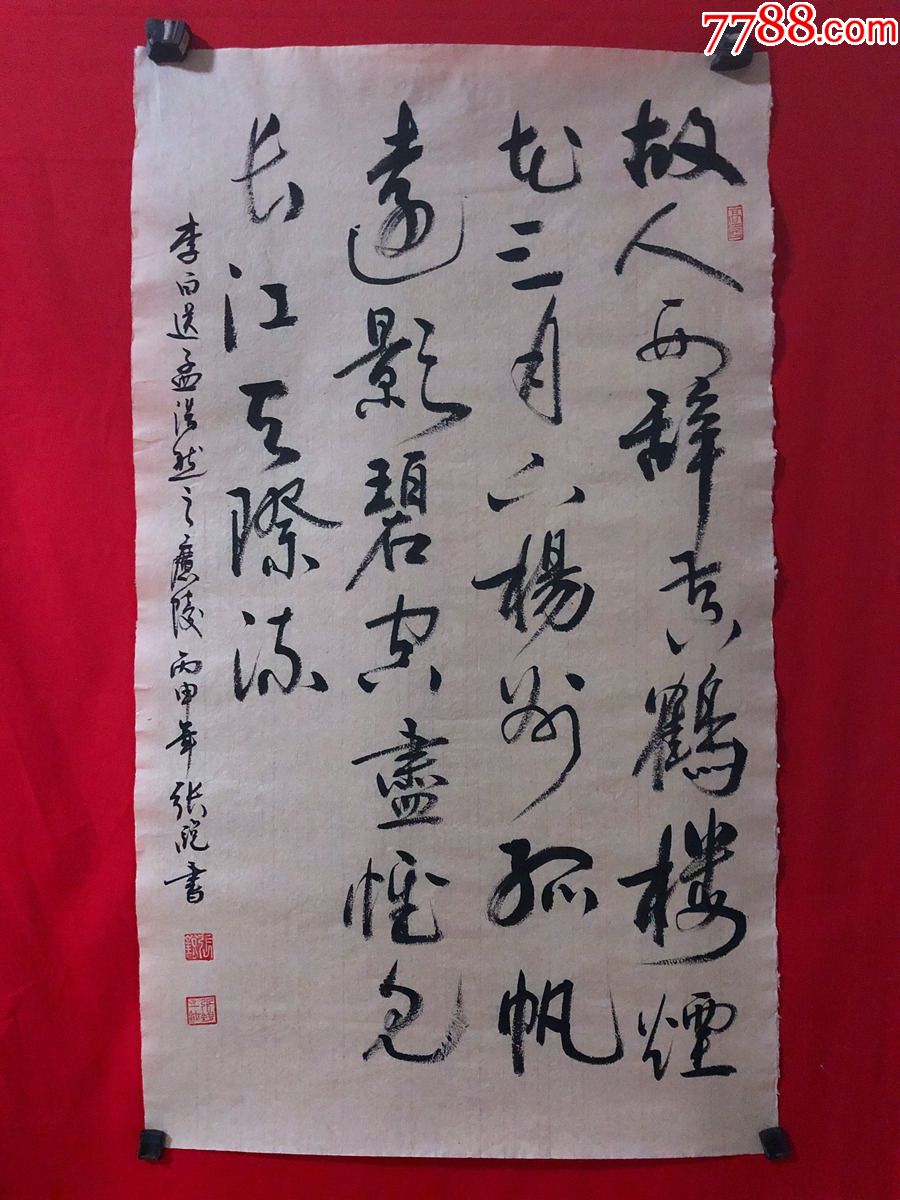 7788.com
故人西辞黄鹤楼煙
花三月下楊州孤帆
遠影碧空盡惟見
长江天際流
李白送孟浩然之廣陵丙申年张院書